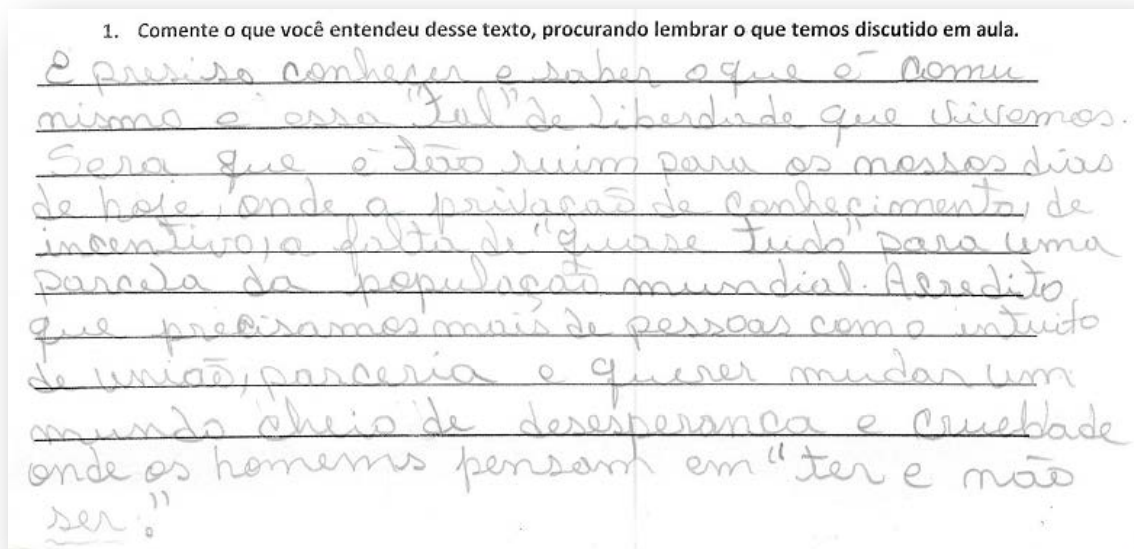 1. Comente o que você entendeu desse texto, procurando lembrar o que temos discutido em aula.
É presiso conhecer e saber o que é comu
nismo e essa "tal" de liberdade que vivemos.
Sera que é tão ruim para os nossos dias
de hoje, onde a privação de conhecimento, de
incentivo, a falta de "quase tudo" para uma
parcela da população mundial. Acredito
que precisamos mais de pessoas com o intuito
de união, parceria e querer mudar um
mundo cheio de desesperança e crueldade
onde os homems pensam em "ter e não
ser."